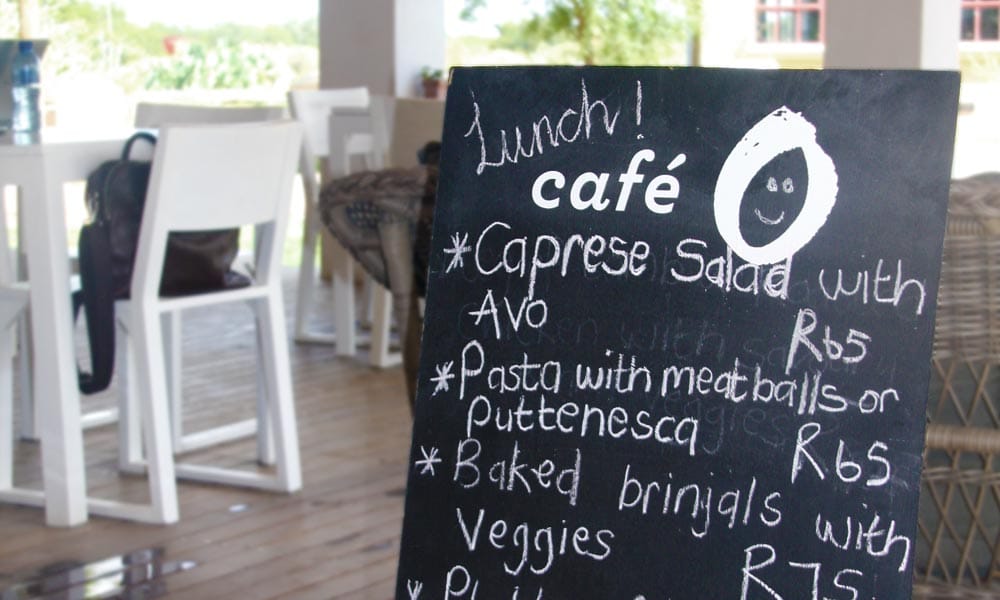 Lunch!
café
*Caprese Salad with
Avo R65
*Pasta with meatballs or
puttenesca R65
*Baked brinjals with
Veggies R75